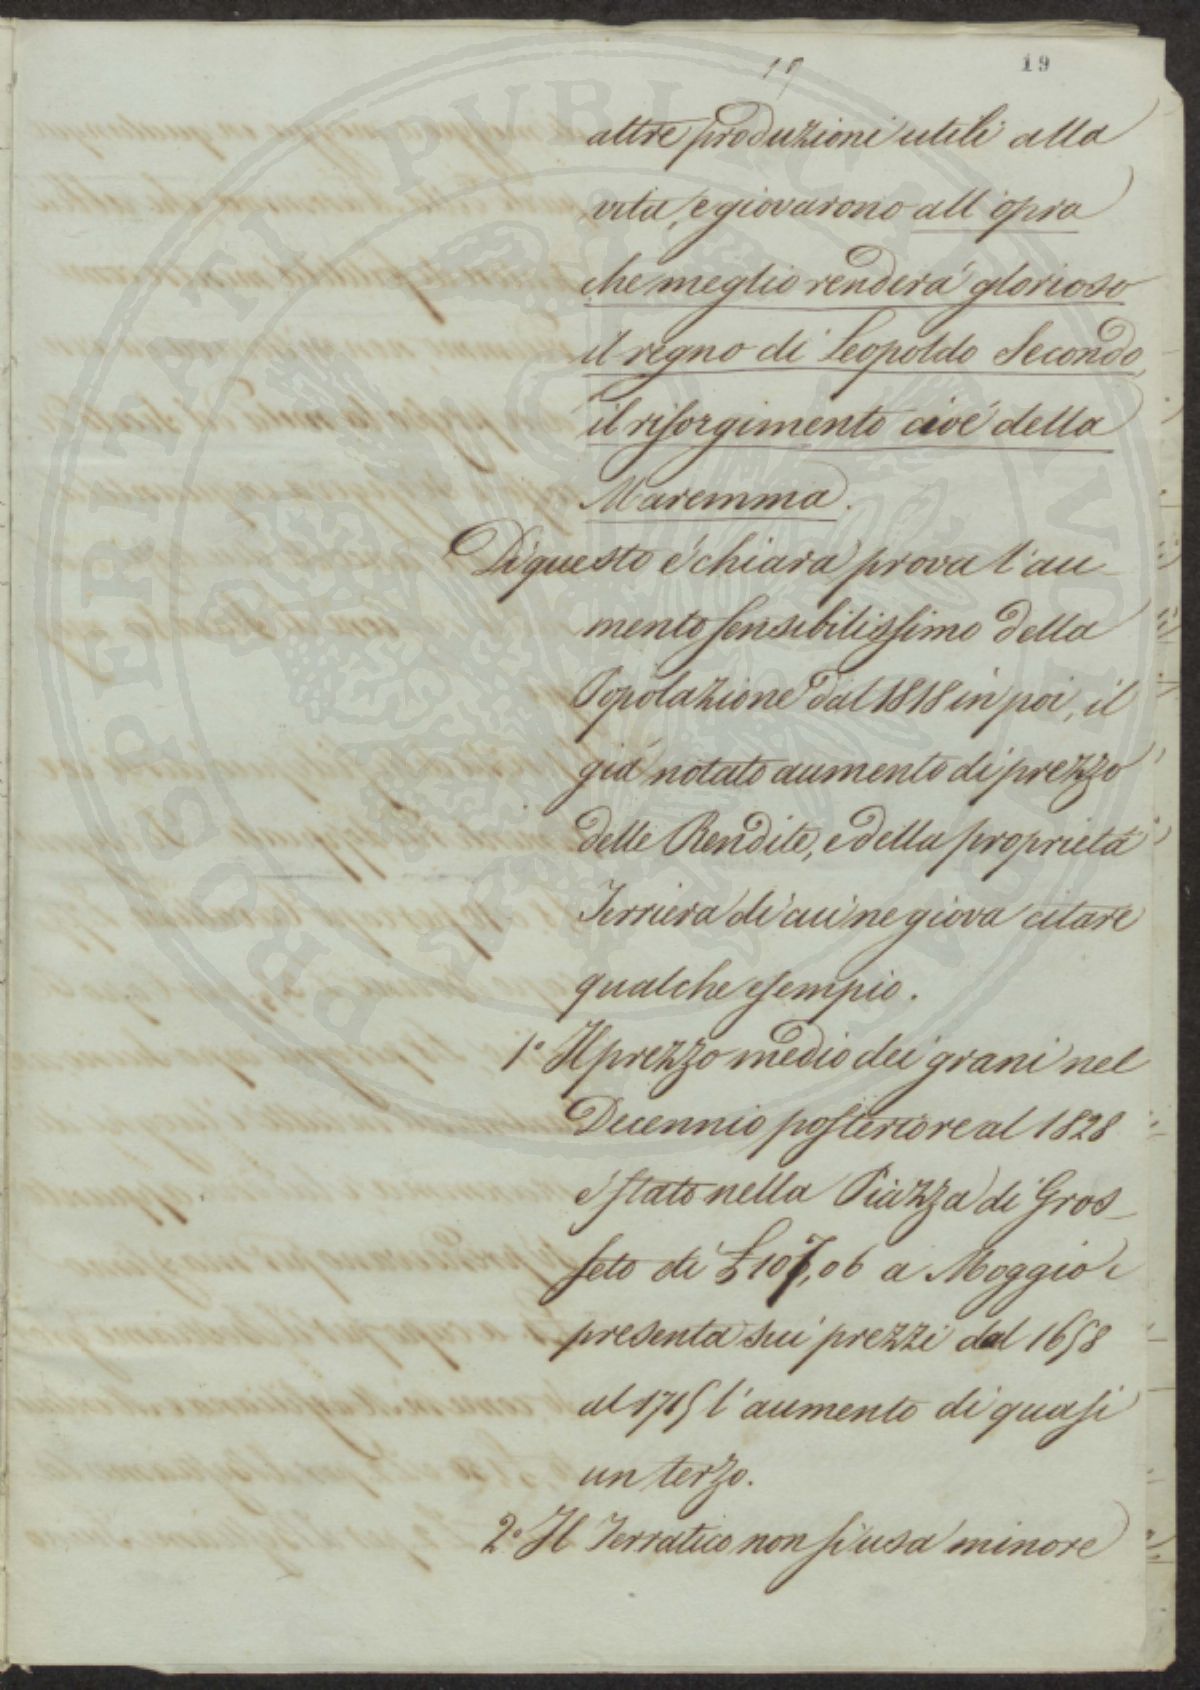 19
19
altre produzioni utili alla
vita, e giovarono all'opra
che meglio renderà glorioso
il regno di Leopoldo Secondo,
il risorgimento cioè della
Maremma.
Di questo è chiara prova l'au-
mento sensibilissimo della
Popolazione dal 1818 in poi, il
già notato aumento di prezzo
delle Rendite, e della proprietà
Terriera di cui ne giova citare
qualche esempio.
1° Il prezzo medio dei grani nel
Decennio posteriore al 1828
è stato nella Piazza di Gros-
seto di £ 107,06 a Moggio
presenta sui prezzi dal 1658
al 1715 l'aumento di quasi
un terzo.
2° Il Terratico non si usa minore
PROSPERITATI PVBLICAE